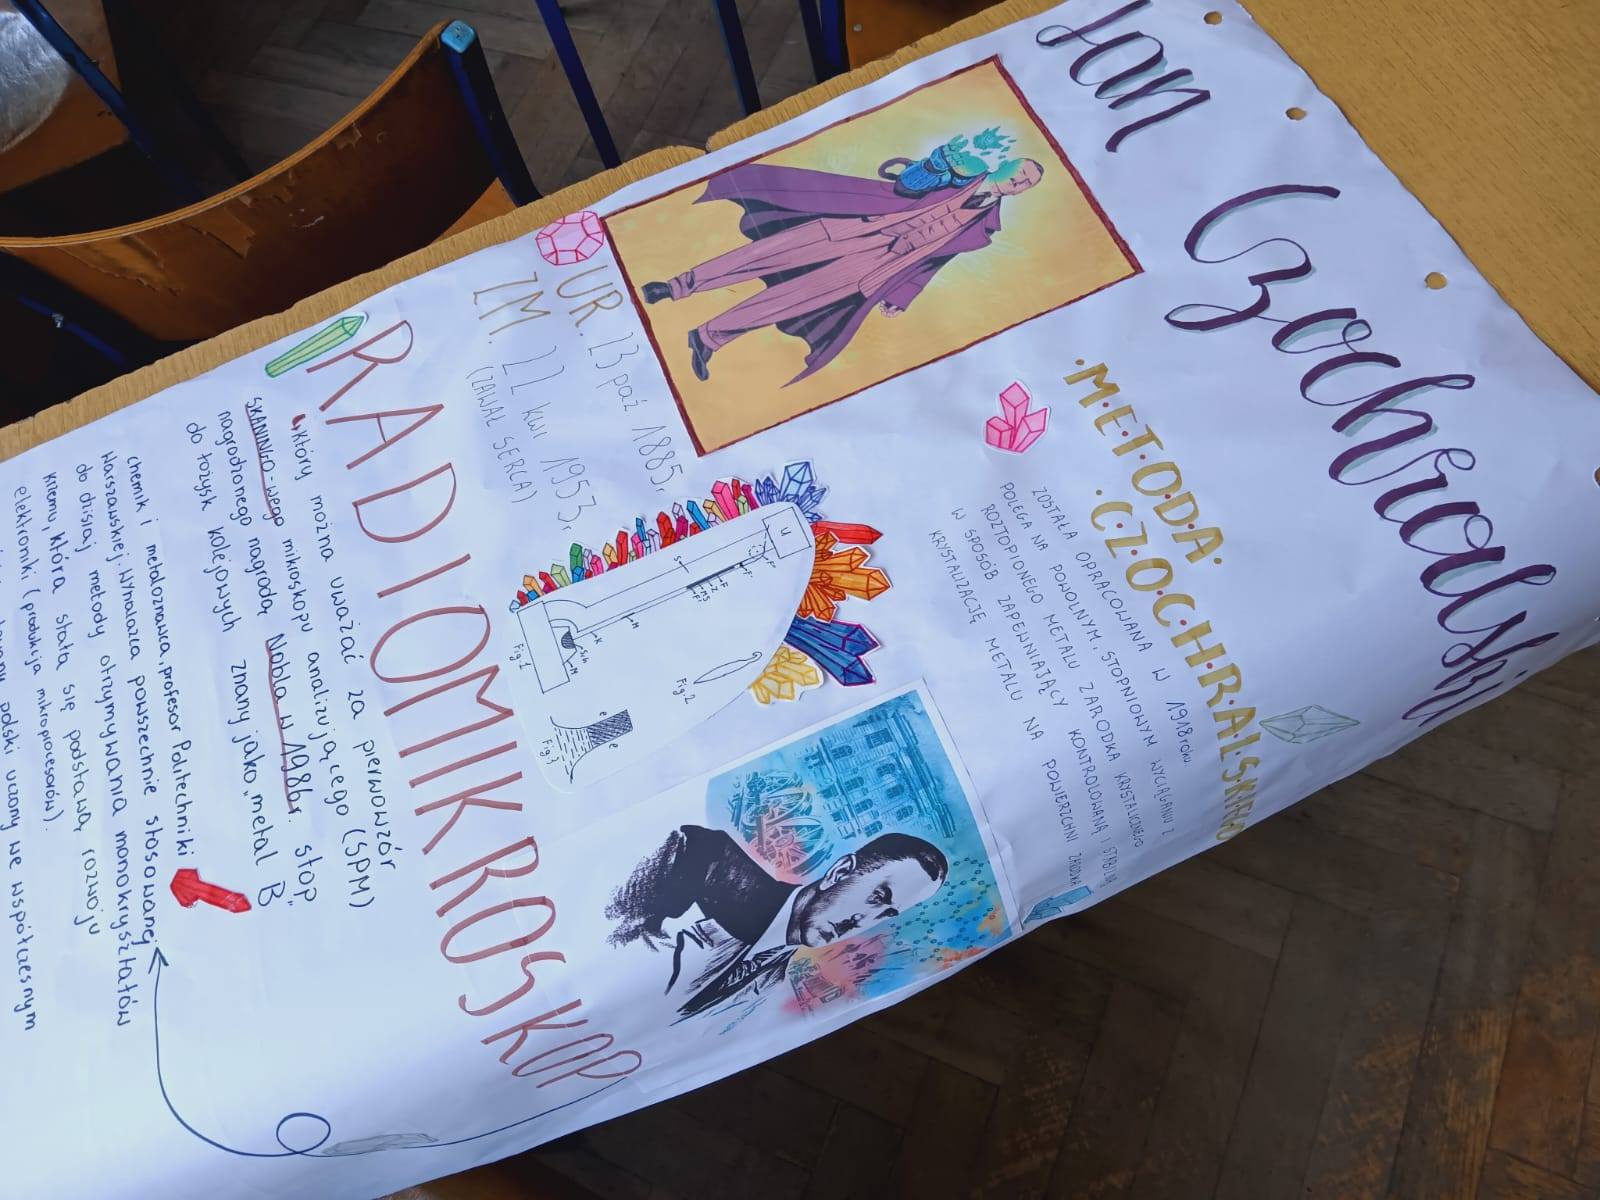 Jan Czochralski
·M·E·T·O·D·A·
·C·Z·O·C·H·R·A·L·S·K·I·E·G·O
ZOSTAŁA OPRACOWANA W 1918 roku.
POLEGA NA POWOLNYM, STOPNIOWYM WYCIĄGANIU Z
ROZTOPIONEGO METALU ZARODKA KRYSTALICZNEGO
W SPOSÓB ZAPEWNIAJĄCY KONTROLOWANĄ I STABILNĄ
KRYSTALIZACJĘ METALU NA POWIERZCHNI ZARODKA
UR. 23 paź 1885r.
ZM. 22 kwi 1953r.
(ZAWAŁ SERCA)
U
F
Z
F
MS
F
S
M
K
Sch
M
Fig.1
Fig.2
e
e
Fig.3
RADIOMIKROSKOP
który można uważać za pierwowzór
SKANINGO-wego mikroskopu analizującego (SPM)
nagrodzonego nagrodą Nobla w 1986r. stop
do łożysk kolejowych znany jako „metal B"
chemik i metaloznawca, profesor Politechniki
Warszawskiej. Wynalazca powszechnie stosowanej
do dzisiaj metody otrzymywania monokryształów
krzemu, która stała się podstawą rozwoju
elektroniki (produkcja mikroprocesorów).
polski uczony we współczesnym